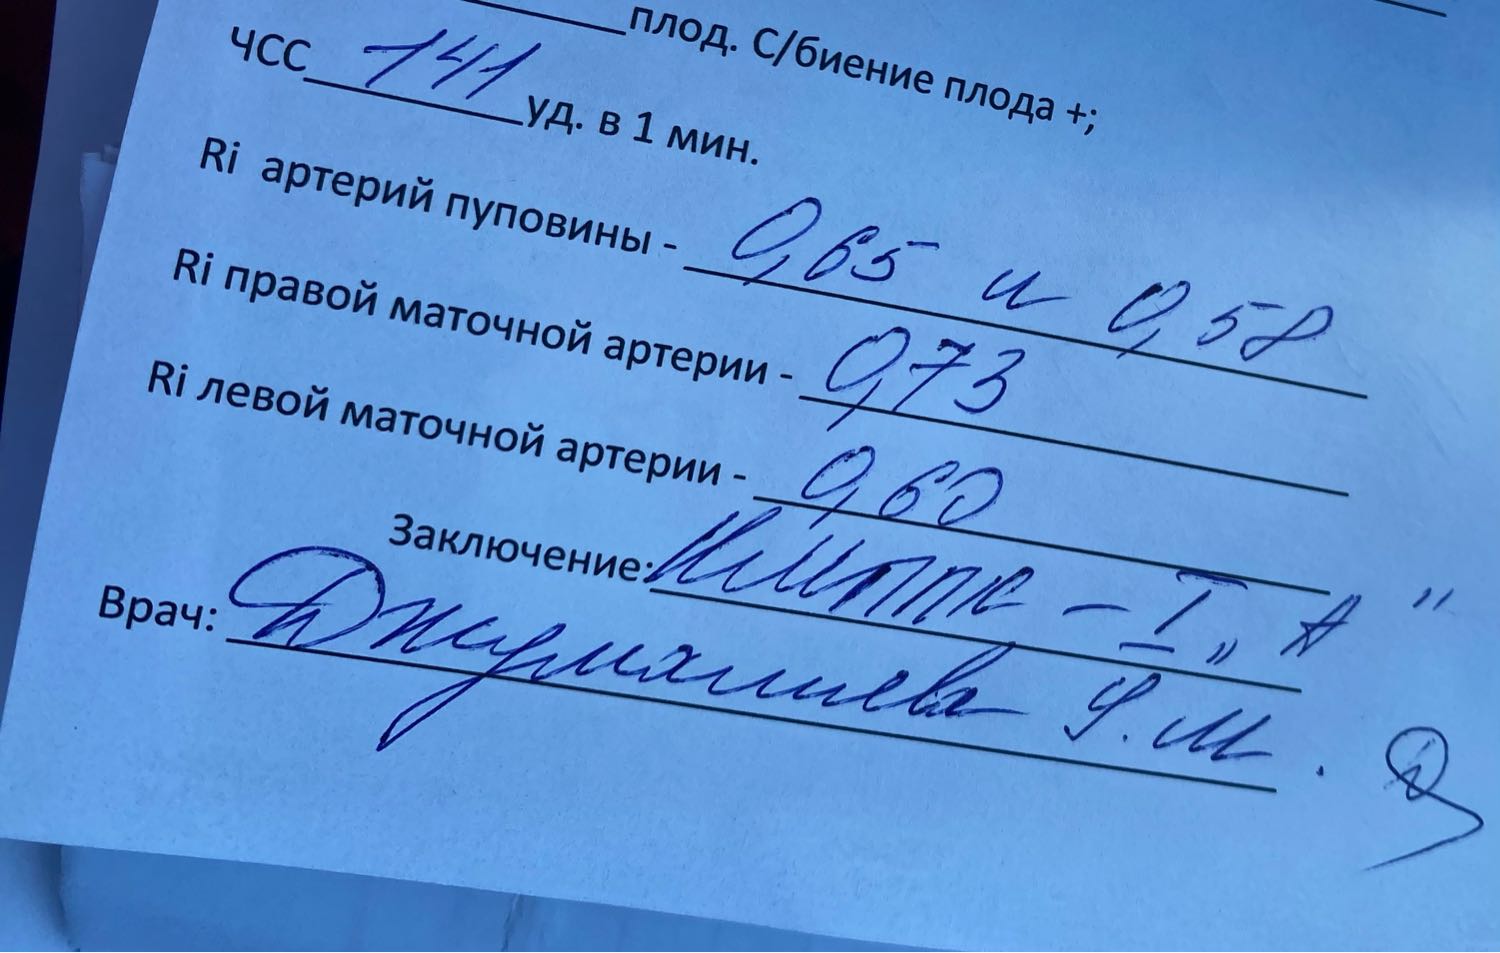 плод. С/биение плода +;
ЧСС 141 уд. в 1 мин.
Ri артерий пуповины - 0,65 и 0,58
Ri правой маточной артерии - 0,73
Ri левой маточной артерии - 0,60
Заключение: НМППК - I „А"
Врач: Ч.М.